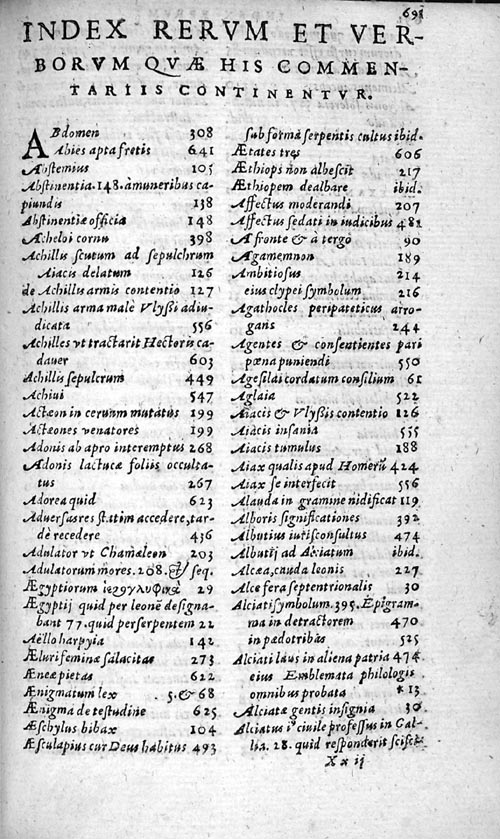 691
INDEX RERVM ET VER-
BORVM QVÆ HIS COMMEN-
TARIIS CONTINENTVR.
ABdomen 308
Abies apta fretis 641
Abstemius 105
Abstinentia. 148. à muneribus ca-
piundis 138
Abstinentiæ officia 148
Acheloi cornu 398
Achillis scutum ad sepulchrum
Aiacis delatum 126
de Achillis armis contentio 127
Achillis arma malè Vlyßi adiu-
dicata 556
Achilles vt tractarit Hectoris ca-
dauer 603
Achillis sepulcrum 449
Achiui 547
Actæon in ceruum mutatus 199
Actæones venatores 199
Adonis ab apro interemptus 268
Adonis lactucæ foliis occulta-
tus 267
Adorea quid 623
Aduersas res statim accedere, tar-
dè recedere 436
Adulator vt Chamæleon 203
Adulatorum mores. 208. & seq.
Ægyptiorum ἱερογλυφικὰ 29
Ægyptij quid per leonē designa-
bant 77. quid per serpentem 22
Aëllo harpyia 142
Æluri feminæ salacitas 273
Æneæ pietas 622
Ænigmatum lex 5. & 68
Ænigma de testudine 625
Æschylus bibax 104
Æsculapius cur Deus habitus 493
sub forma serpentis cultus ibid.
Ætates tres 606
Æthiops non albescit 217
Æthiopem dealbare ibid.
Affectus moderandi 207
Affectus sedati in iudicibus 481
A fronte & à tergo 90
Agamemnon 189
Ambitiosus 214
eius clypei symbolum 216
Agathocles peripateticus arro-
gans 244
Agentes & consentientes pari
pœna puniendi 550
Agesilai cordatum consilium 61
Aglaia 522
Aiacis & Vlyßis contentio 126
Aiacis insania 555
Aiacis tumulus 188
Aiax qualis apud Homerū 424
Aiax se interfecit 556
Alauda in gramine nidificat 119
Alboris significationes 392
Albutius iurisconsultus 474
Albutij ad Alciatum ibid.
Alcæa, cauda leonis 227
Alce fera septentrionalis 30
Alciati symbolum. 395. Epigram-
ma in detractorem 470
in pædotribas 525
Alciati laus in aliena patria 474
eius Emblemata philologis
omnibus probata * 13
Alciatæ gentis insignia 30
Alciatus ius ciuile professus in Gal-
lia. 28. quid responderit
X x ij